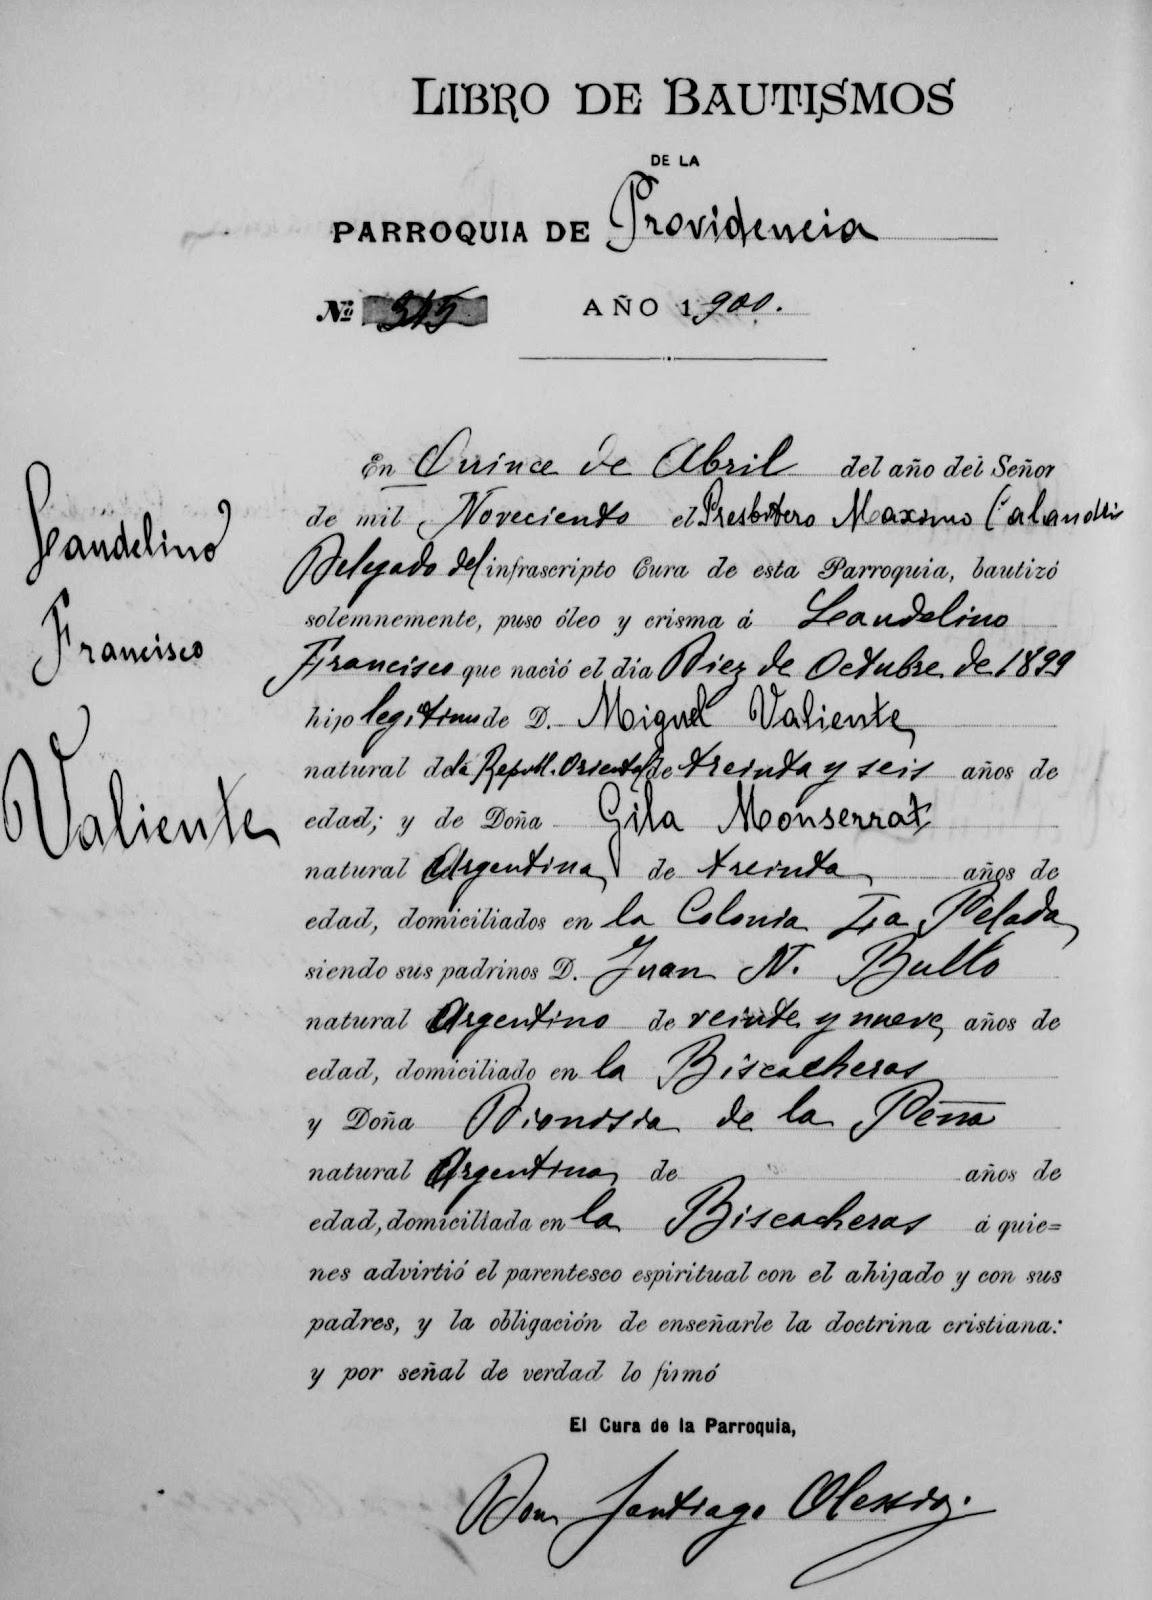 LIBRO DE BAUTISMOS
DE LA
PARROQUIA DE Providencia
Nº 315 AÑO 1900.
En Quince de Abril del año del Señor
de mil Noveciento el Presbitero Maximo Calandri
Delegado del infrascripto Cura de esta Parroquia, bautizó
solemnemente, puso óleo y crisma á Leandelino
Francisco que nació el día Diez de Octubre de 1899
hijo legitimo de D. Miguel Valiente
natural de la Repub. Oriental de treinta y seis años de
edad; y de Doña Gila Monserrat
natural Argentina de treinta años de
edad, domiciliados en la Colonia La Pelada
siendo sus padrinos D. Juan N. Bullo
natural Argentino de veinte y nueve años de
edad, domiciliado en la Biscacheras
y Doña Dionisia de la Peña
natural Argentina de años de
edad, domiciliada en la Biscacheras á quie=
nes advirtió el parentesco espiritual con el ahijado y con sus
padres, y la obligación de enseñarle la doctrina cristiana:
y por señal de verdad lo firmó
El Cura de la Parroquia,
Don Santiago Olessio.
Leandelino
Francisco
Valiente